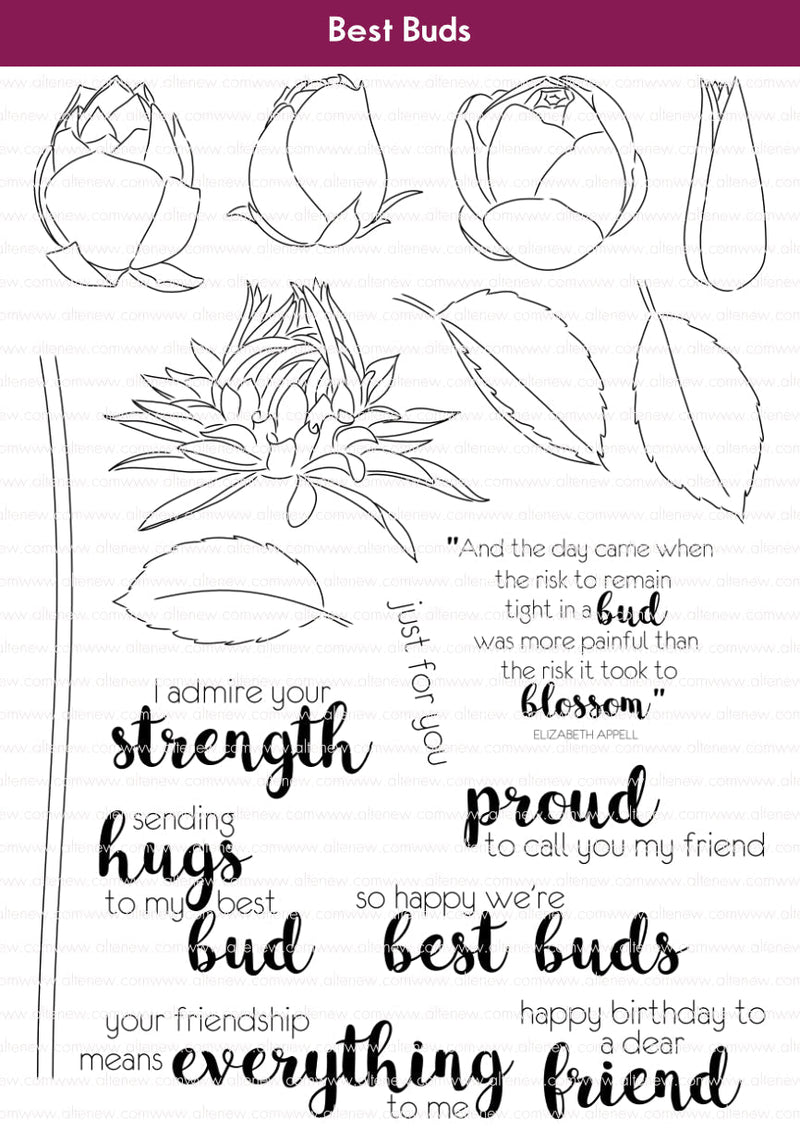 Best Buds
"And the day came when
the risk to remain
tight in a bud
was more painful than
the risk it took to
blossom"
ELIZABETH APPELL
just for you
I admire your
strength
proud
to call you my friend
sending
hugs
to my best
bud
so happy we're
best buds
your friendship
means everything
to me
happy birthday to
a dear
friend
www.altenew.com